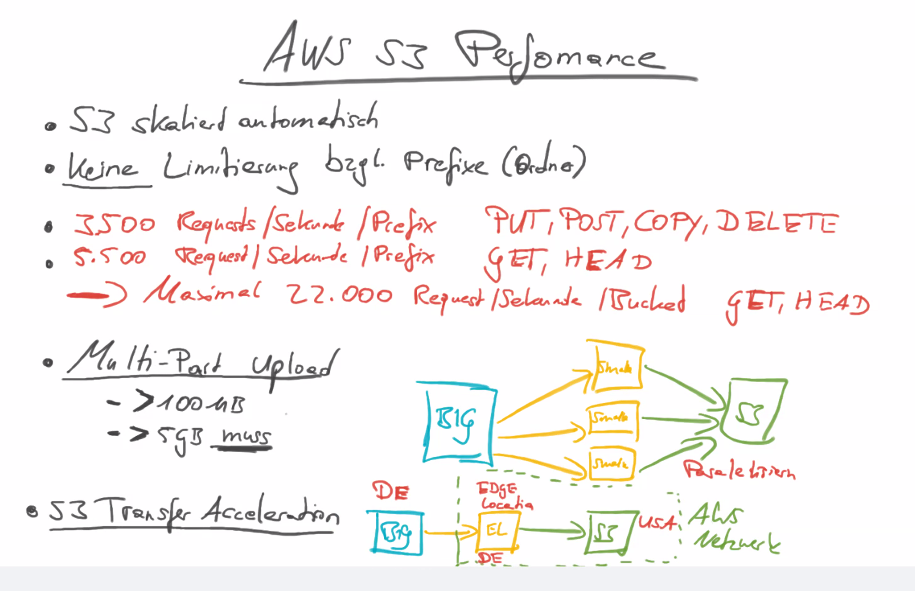 AWS S3 Perfomance
• S3 skaliert automatisch
• Keine Limitierung bzgl. Prefixe (Ordner)
• 3.500 Requests/Sekunde/Prefix PUT, POST, COPY, DELETE
• 5.500 Request/Sekunde/Prefix GET, HEAD
→ Maximal 22.000 Request/Sekunde/Bucked GET, HEAD
• Multi-Part Upload
- >100MB
- >5GB muss
BIG
Small
Small
Small
S3
Paralelisiern
• S3 Transfer Acceleration
DE
BIG
EDGE
Locatio
EL
DE
S3
USA
AWS
Netzwerk